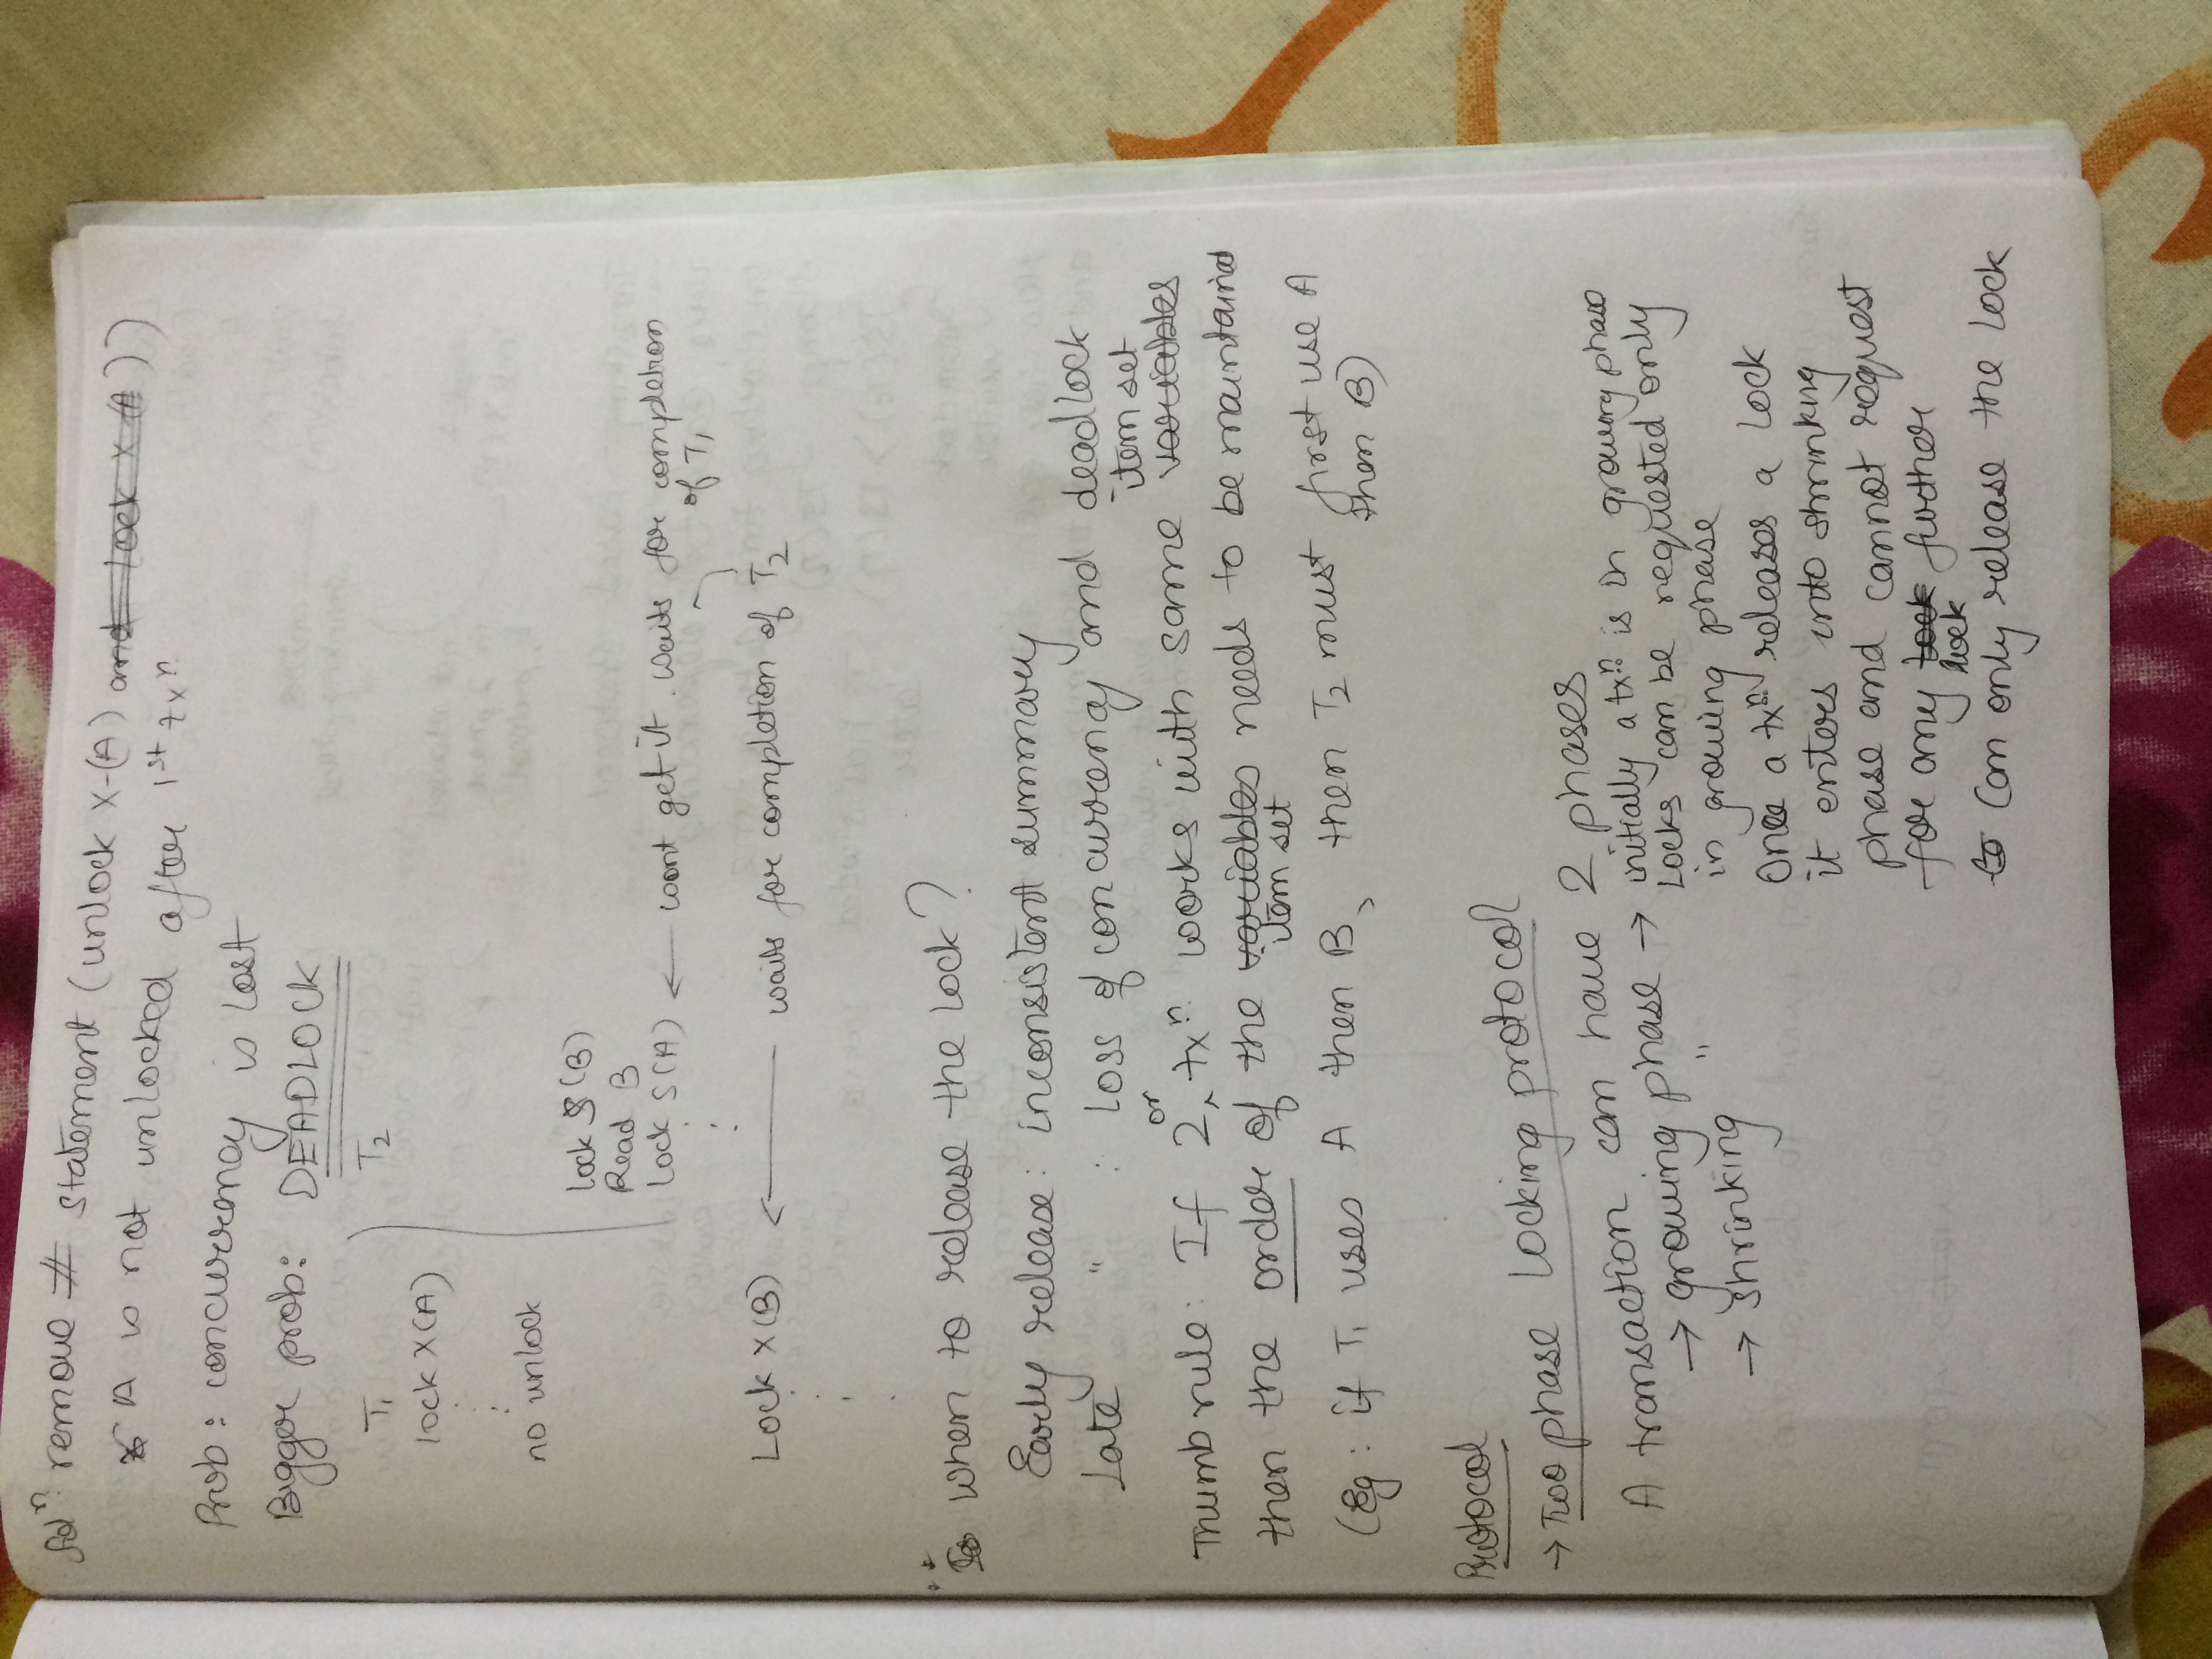 Solⁿ remove # statement (unlock X-(A) and lock X (A))
A is not unlocked after 1st txⁿ
Prob: concurrency is lost
Bigger prob: DEADLOCK
T1 T2
lock X(A)
no unlock
Lock S(B)
Read B
Lock S(A) ← wont get it. Waits for completion
of T1
Lock X(B) ← waits for completion of T2
When to release the lock?
Early release: inconsistent summary
Late " : loss of concurrency and deadlock
item set
Thumb rule: If 2 or txⁿ works with same variables
then the order of the variables needs to be maintained
item set
(Eg: if T1 uses A then B, then T2 must first use A
then B)
Protocol
→ Two phase Locking protocol
A transaction can have 2 phases
→ growing phase → initially a txⁿ is in growing phase
Locks can be requested only
in growing phase
→ shrinking "
Once a txⁿ releases a lock
it enters into shrinking
phase and cannot request
for any lock further
lock
Can only release the lock